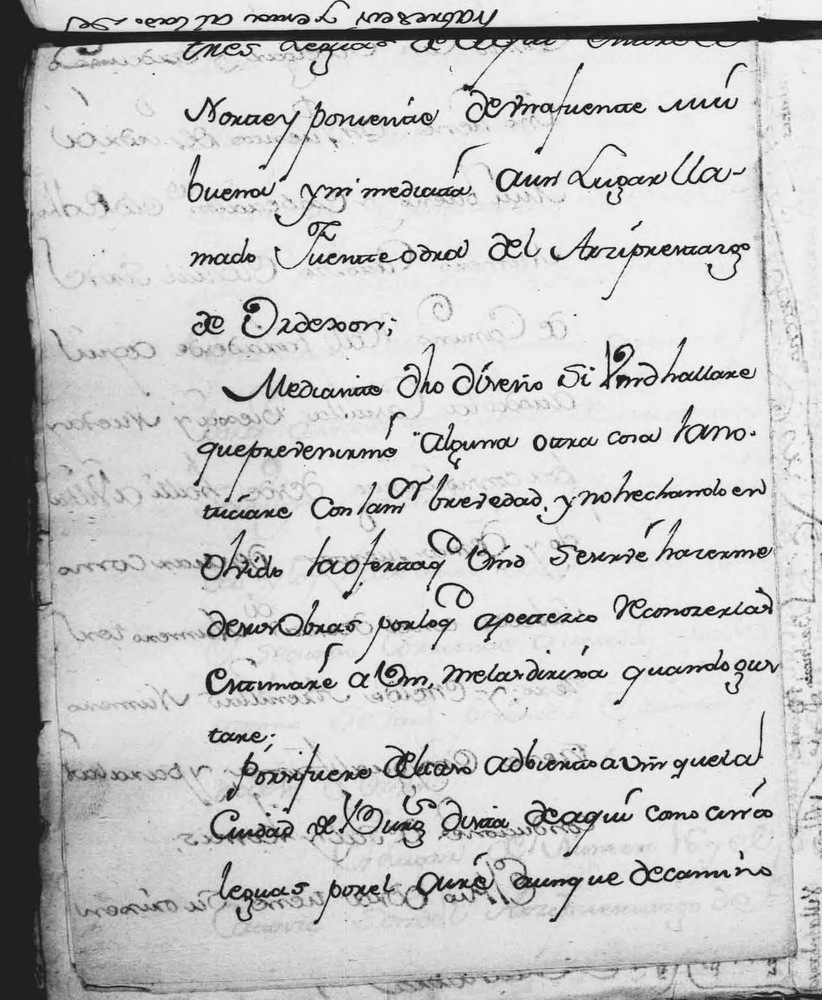 tres leguas de aqui entre el
Norte y poniente de una fuente mui
buena y inmediata aun Lugar lla-
mado Fuente odra del Arziprestazgo
de Ordexon;
Mediante dho diseño Si Vmd hallare
que prevenirme alguna otra cosa la no-
ticiare Con la mor brevedad, y no hechando en
Olvido la oferta q Vmd se sirve hazerme
de sus Obras por lo q apetezco Reconozerlas
Estimaré a Vm, me las dirixa quando gus
tare;
Por si fuere del caso adbierto a Vm que la
Ciudad de Burgs dista de aquí como cinco
leguas por el Aire, aunque de camino